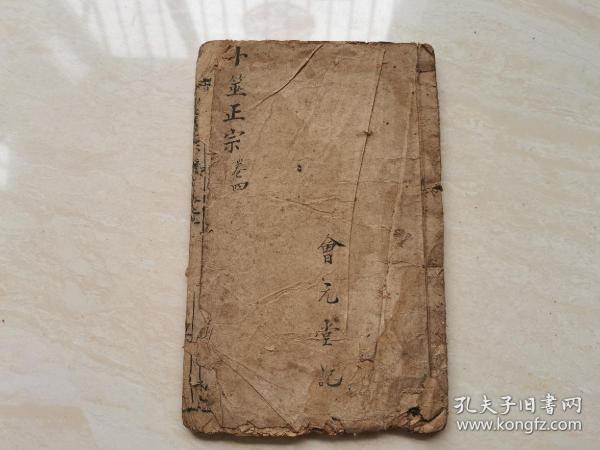 卜筮正宗 卷四
會元堂記
孔夫子旧書网
www.kongfz.com